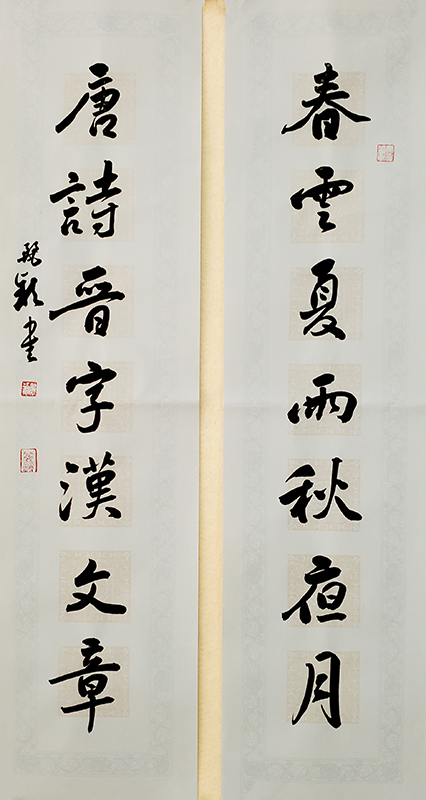 春雲夏雨秋夜月
唐詩晉字漢文章
穎書